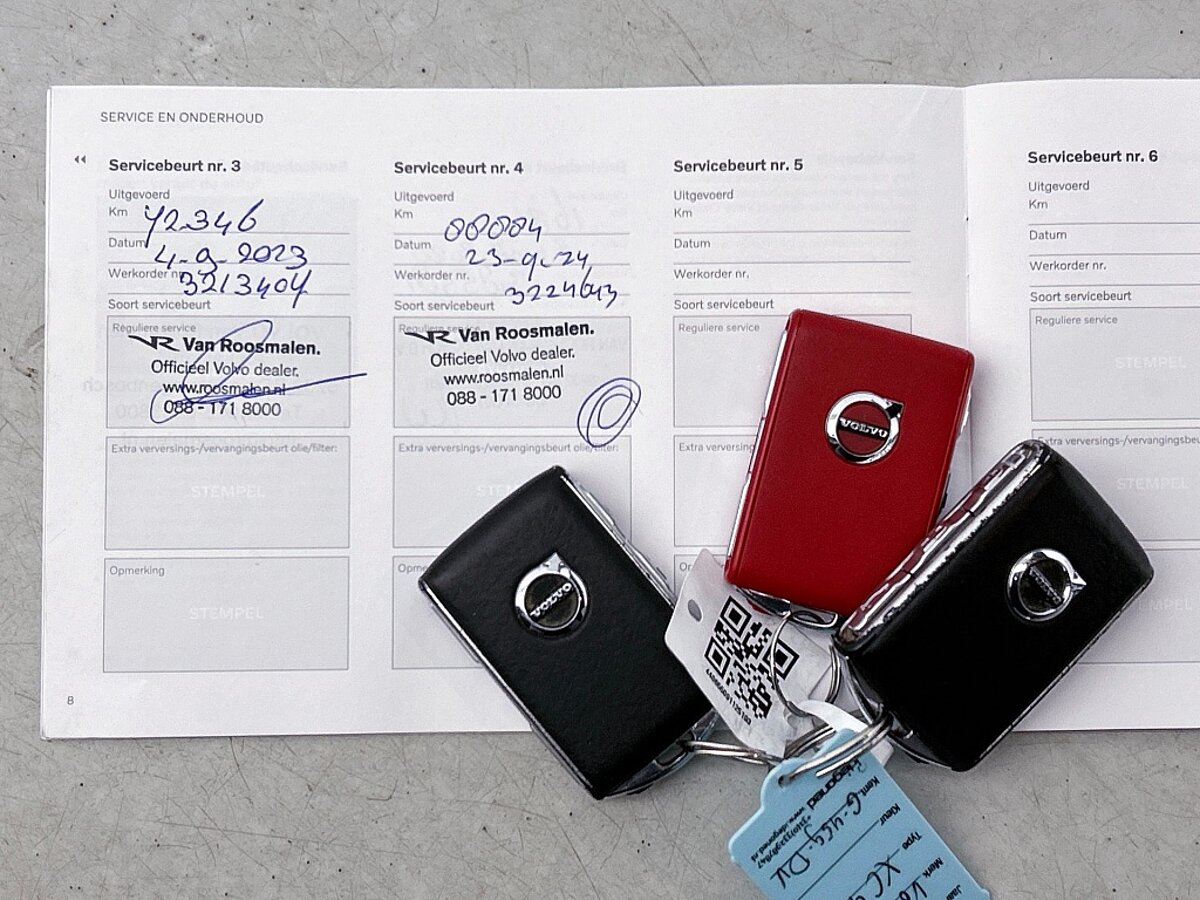 SERVICE EN ONDERHOUD
Servicebeurt nr. 3
Uitgevoerd
Km 72346
Datum 4-9-2023
Werkorder nr. 3213404
Soort servicebeurt
Reguliere service
VR Van Roosmalen.
Officieel Volvo dealer.
www.roosmalen.nl
088 - 171 8000
Extra verversings-/vervangingsbeurt olie/filter:
STEMPEL
Opmerking
STEMPEL
8
Servicebeurt nr. 4
Uitgevoerd
Km
Datum 23-9-24
Werkorder nr.
Soort servicebeurt
Reguliere service
VR Van Roosmalen.
Officieel Volvo dealer.
www.roosmalen.nl
088 - 171 8000
Extra verversings-/vervangingsbeurt olie/filter:
Servicebeurt nr. 5
Uitgevoerd
Km
Datum
Werkorder nr.
Soort servicebeurt
Reguliere service
Extra verversings-
Servicebeurt nr. 6
Uitgevoerd
Km
Datum
Werkorder nr.
Soort servicebeurt
Reguliere service
STEMPEL
Extra verversings-/vervangingsbeu
STEMPEL
VOLVO
VOLVO
VOLVO
Kent.
Kleur
Type XC
Merk